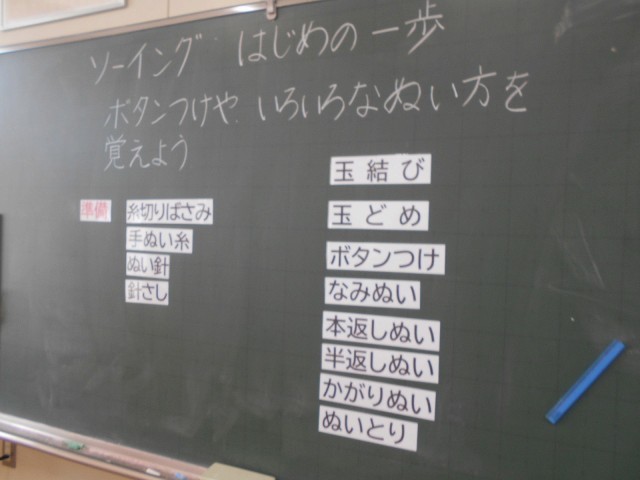 ソーイング はじめの一歩
ボタンつけや、いろいろなぬい方を
覚えよう
準備
糸切りばさみ
手ぬい糸
ぬい針
針さし
玉結び
玉どめ
ボタンつけ
なみぬい
本返しぬい
半返しぬい
かがりぬい
ぬいとり